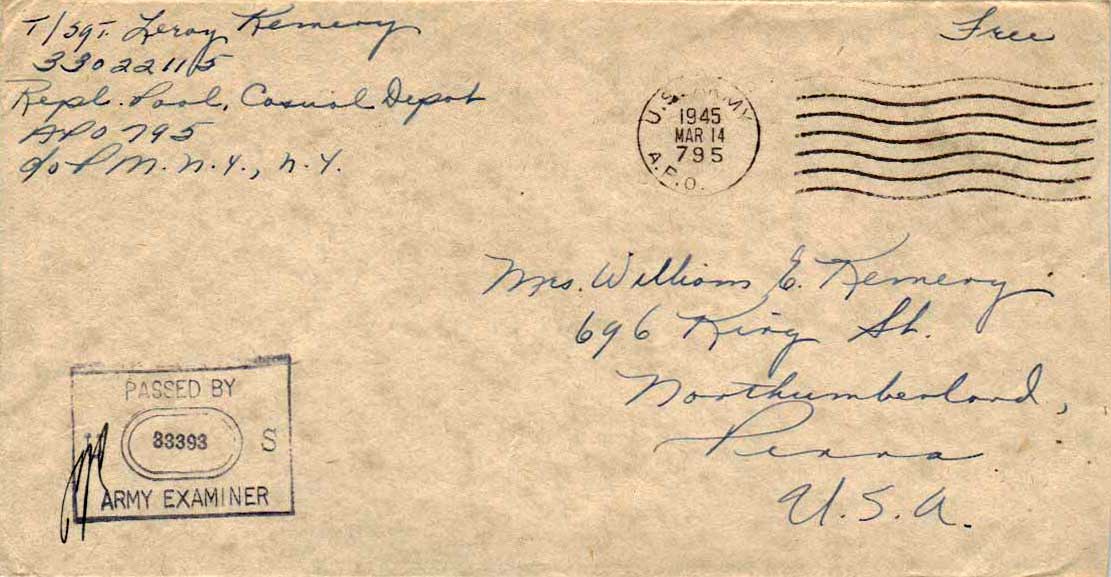 T/Sgt. Leroy Kemery
33022115
Repl. Pool, Casual Depot
APO 795
c/o P.M. N.Y., N.Y.
Free
U.S. ARMY
1945
MAR 14
795
A.P.O.
Mrs. William E. Kemery
696 King St.
Northumberland,
Penna
U.S.A.
PASSED BY
33393
S
ARMY EXAMINER